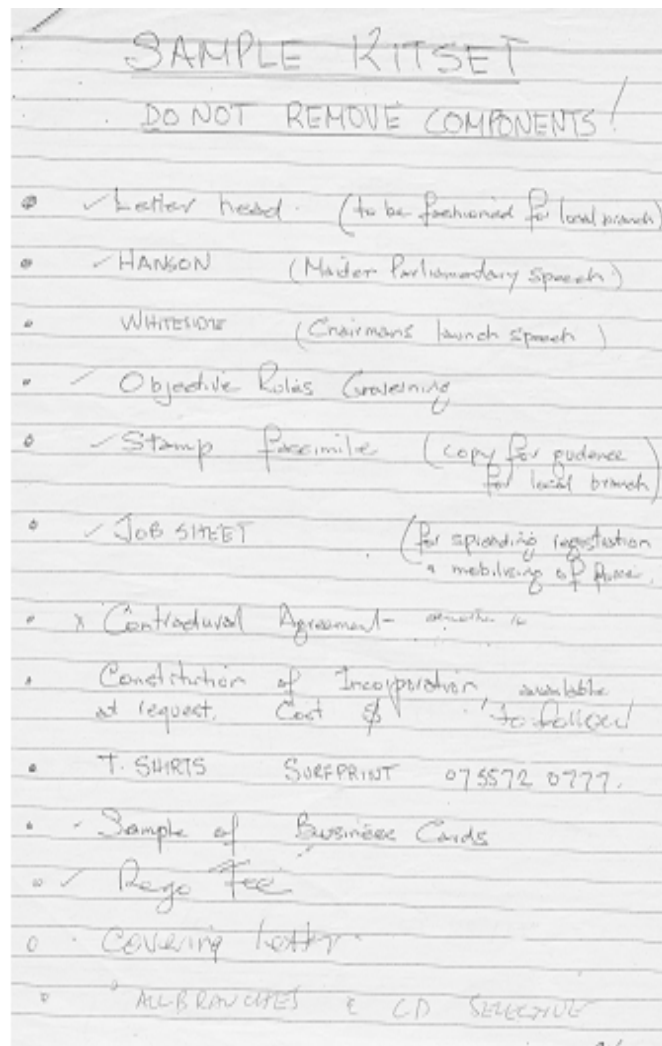 SAMPLE KITSET
DO NOT REMOVE COMPONENTS!
Letter head. (to be fashioned for local branch)
HANSON (Maiden Parliamentary speech)
(Chairmans launch speech)
Objective Governing
Stamp facimile (copy for
for local branch)
JOB SHEET (for
mobilising of
Agreement -
Constitution of Incorporation available
at request. Cost $ to follow
T. SHIRTS SURFPRINT 075572 0777.
Sample of Business Cards
Rego Fee
Covering letter.
ALL BRANCHES & CD SELECTIVE